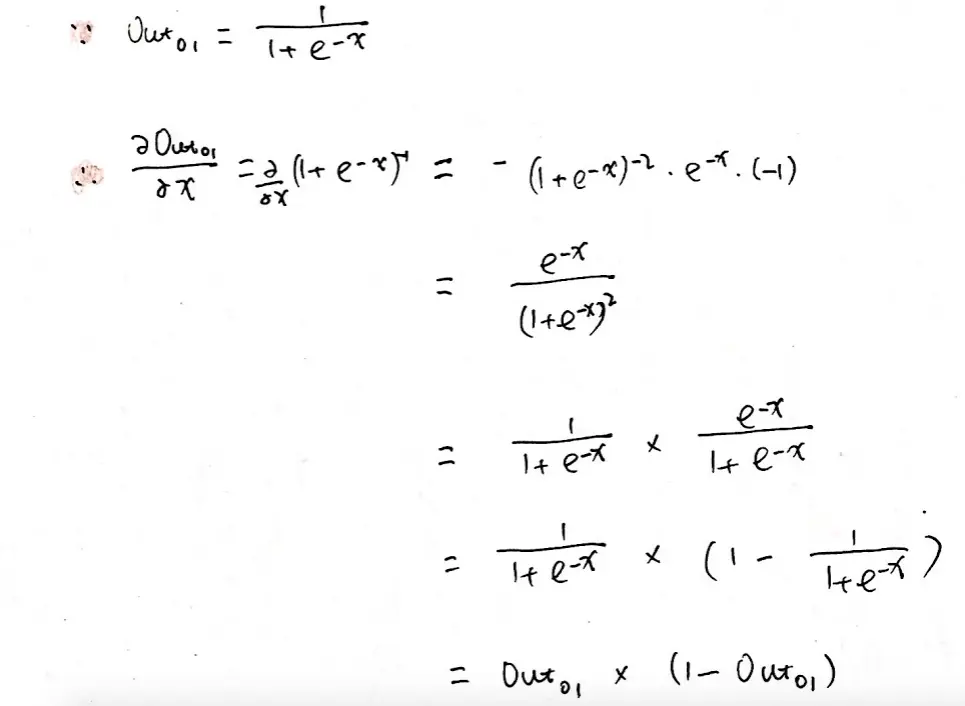 Out₀₁ = 1 / (1 + e^{-x})
∂Out₀₁/∂x = ∂/∂x (1 + e^{-x})^{-1} = -(1 + e^{-x})^{-2} · e^{-x} · (-1)
= e^{-x} / (1 + e^{-x})²
= 1 / (1 + e^{-x}) × e^{-x} / (1 + e^{-x})
= 1 / (1 + e^{-x}) × (1 - 1 / (1 + e^{-x}))
= Out₀₁ × (1 - Out₀₁)